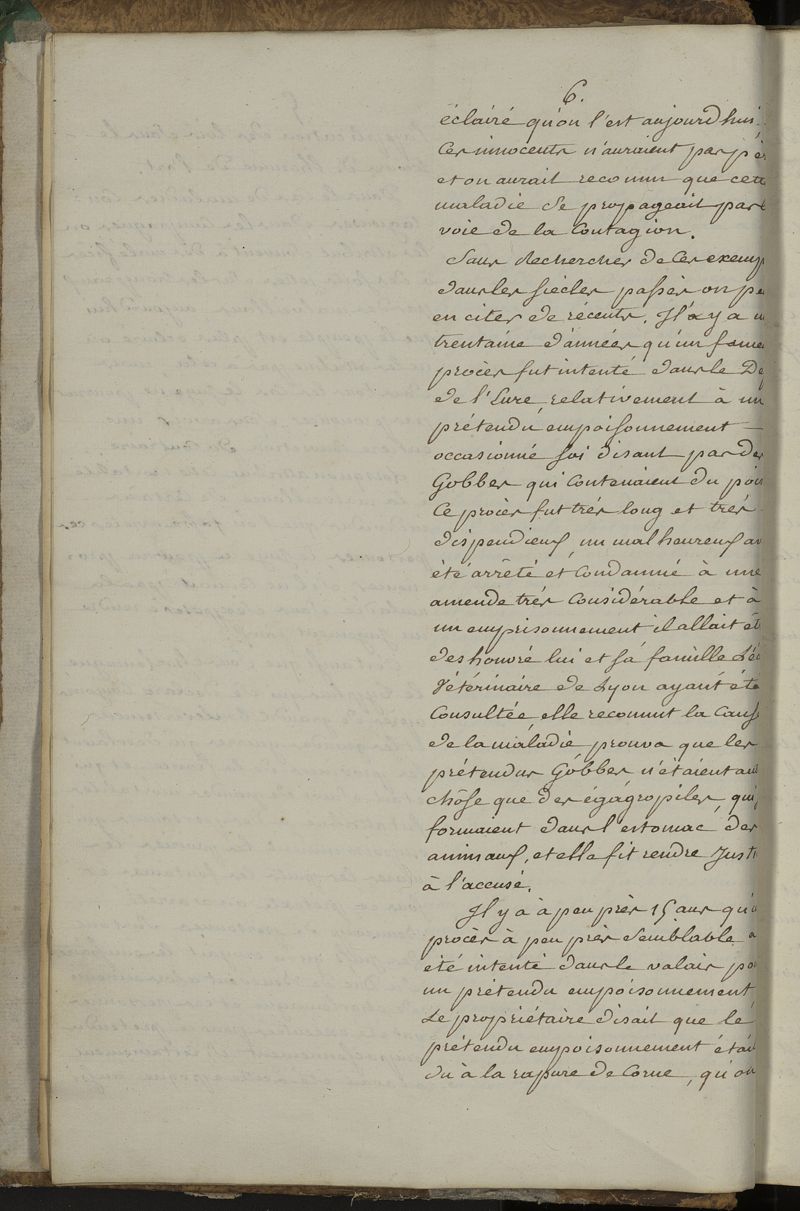 6.
éclairé qu'on l'est aujourd'hui
Ces innocents n'auraient pas pé
et on aurait reconnu que cett
maladie se propageait par
voie de la Contagion.
Sans Rechercher de Ces exemp
dans les siècles passés on pe
en citer de récents. Il y a u
trentaine d'années qu'un fame
procès fut intenté dans le De
de l'Eure, relativement à un
prétendu empoisonnement —
occasionné soi disant par des
Gobbes qui Contenaient du pois
Ce procès fut très long et très
dispendieux, un malheureux av
été arrêté et Condamné à une
amende très Considérable et à
un emprisonnement il allait êt
deshonoré lui et sa famille L'éc
Vétérinaire de Lyon ayant été
Consultée, elle reconnut la Caus
de la maladie prouva que les
prétendus Gobbes n'étaient au
chôse que des égagropiles, qui
formaient dans l'estomac des
animaux, et elle fit rendre Justi
à l'accusé.
Il y a à peu près 15 ans qu'u
procès à peu près Semblable a
été intenté dans le valais po
un prétendu empoisonnement
Le propriétaire disait que le
prétendu empoisonnement étai
dû à la rapure de Corne, qu'on